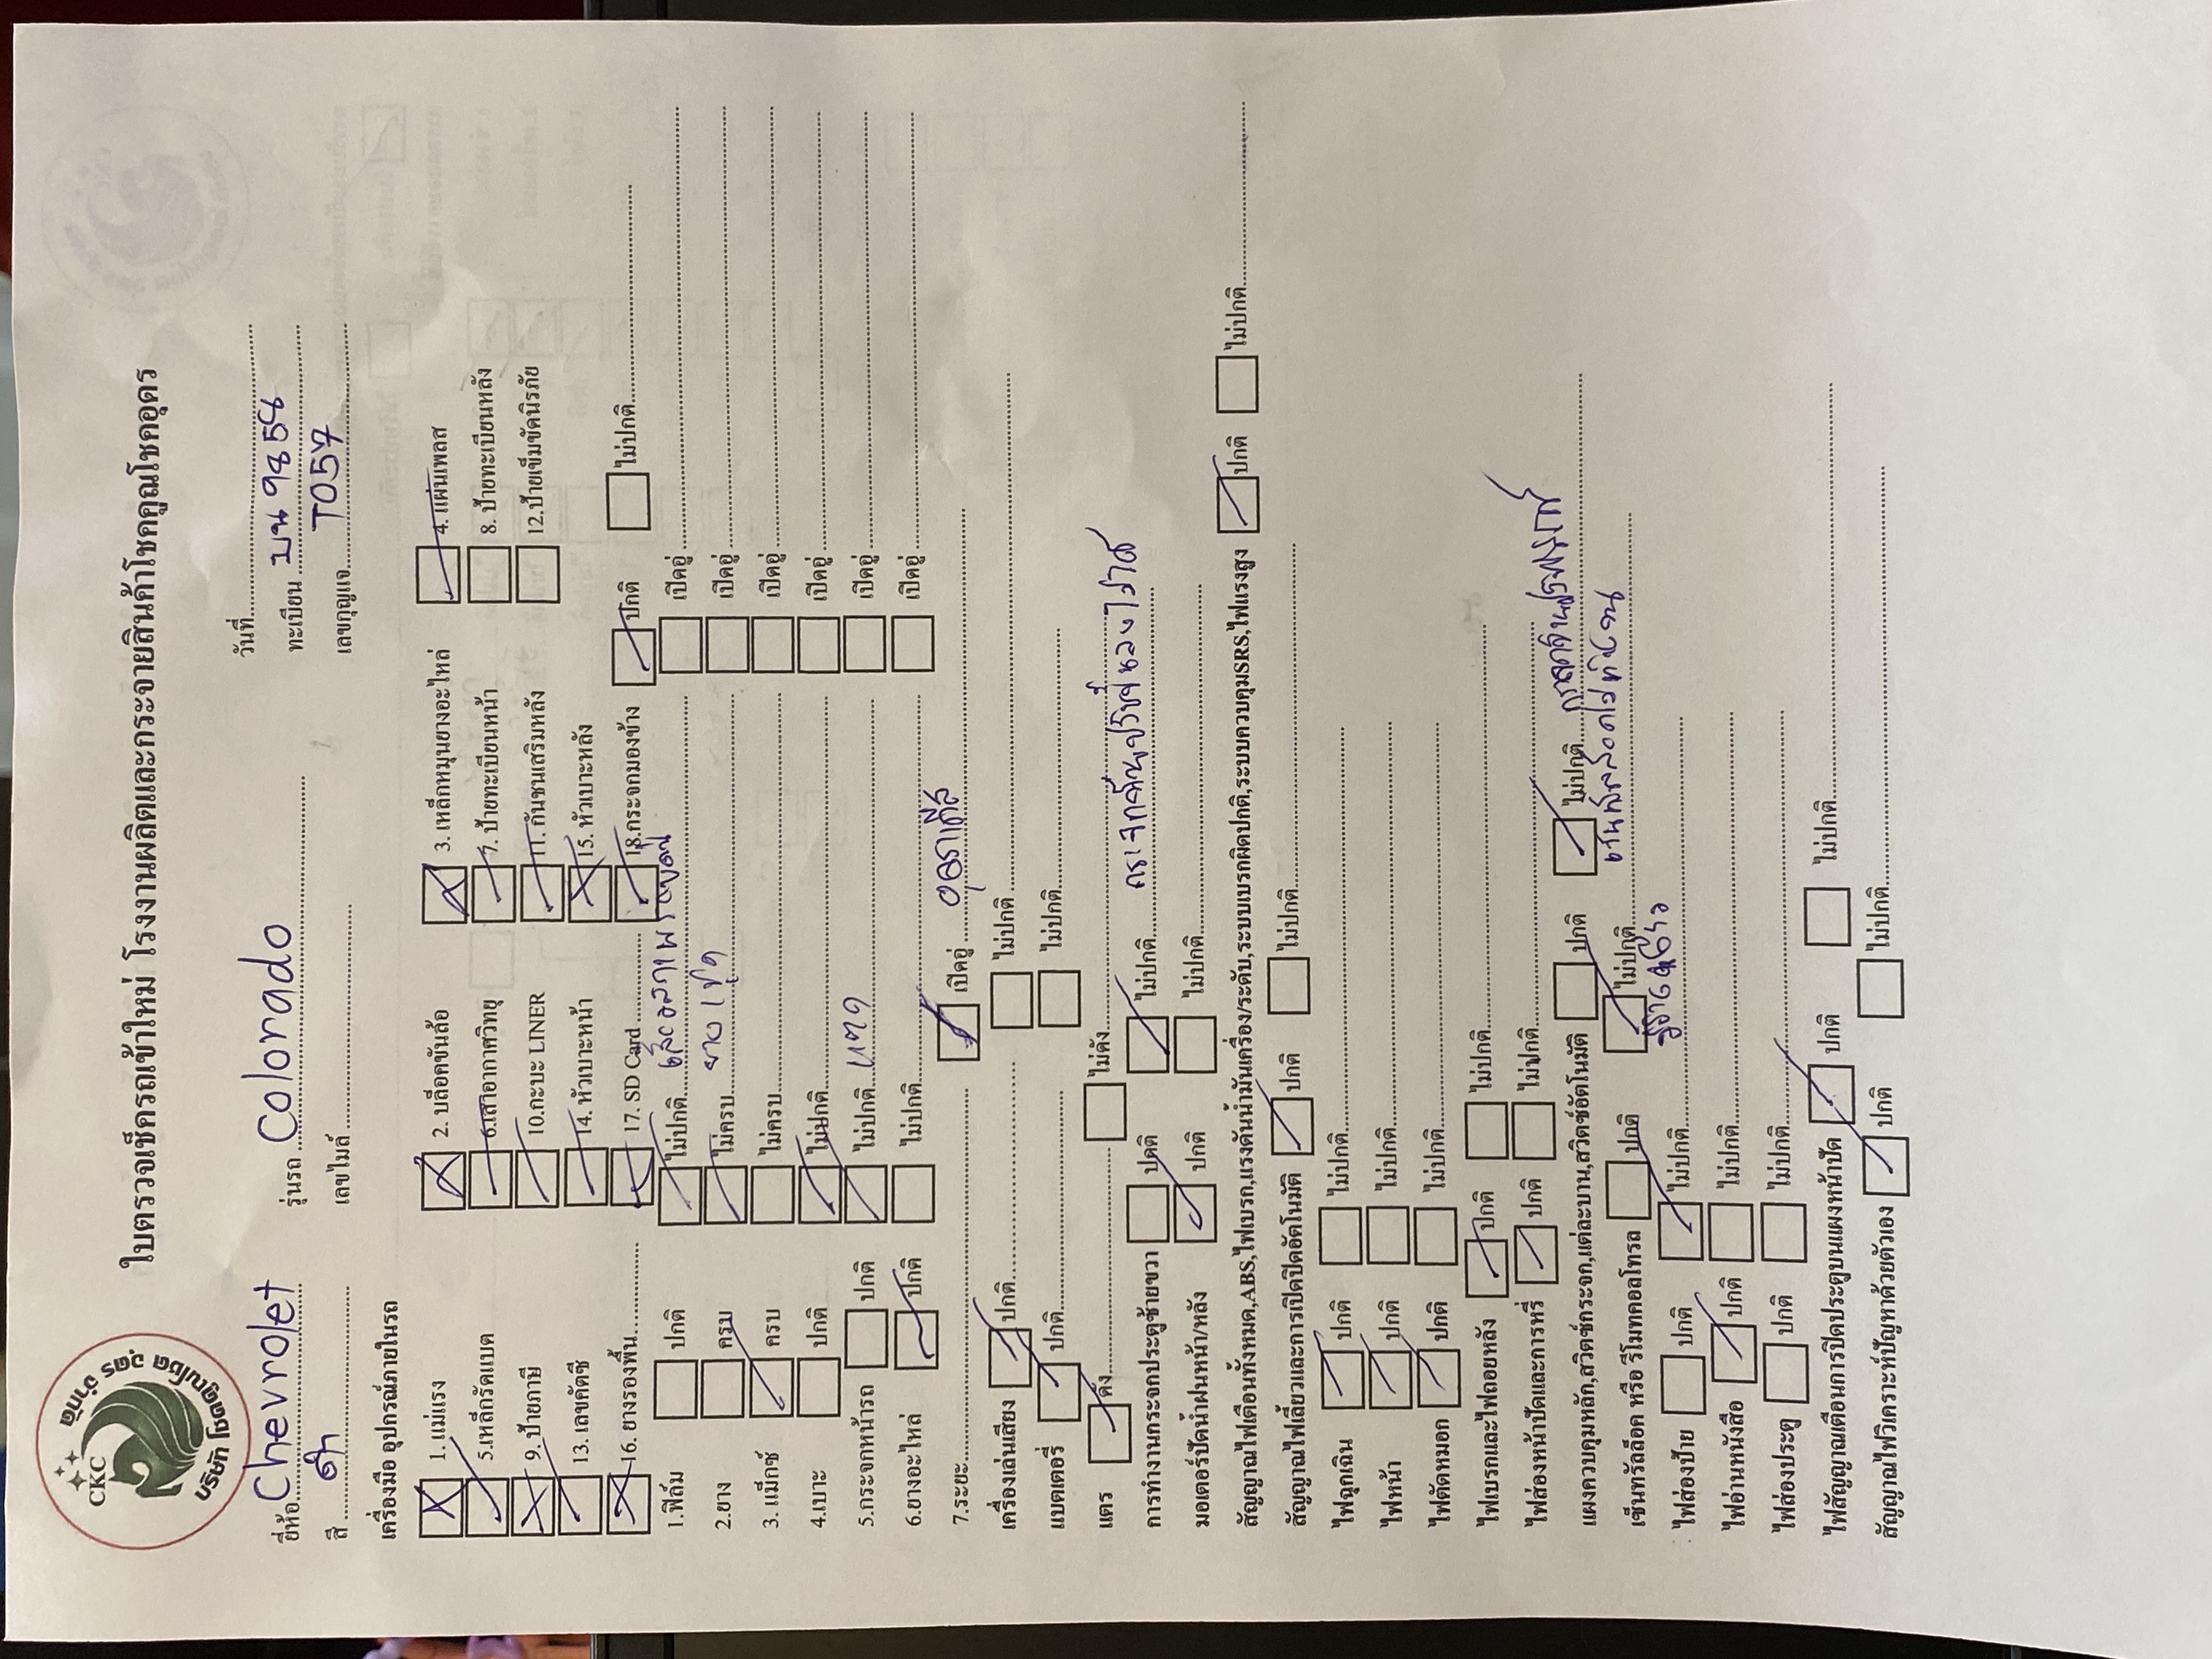 CKC
บริษัท โชคคูณโชค อุดร จำกัด
ใบตรวจเช็ครถเข้าใหม่ โรงงานผลิตและกระจายสินค้าโชคคูณโชคอุดร
วันที่
ยี่ห้อ Chevrolet รุ่นรถ Colorado ทะเบียน บน 9858
สี ดำ เลขไมล์ เลขกุญแจ T057
เครื่องมือ อุปกรณ์ภายในรถ
1. แม่แรง 2. บล็อคขันล้อ 3. เหล็กหมุนยางอะไหล่ 4. แผ่นเพลส
5.เหล็กรัดแบต 6.เสาอากาศวิทยุ 7. ป้ายทะเบียนหน้า 8. ป้ายทะเบียนหลัง
9. ป้ายภาษี 10.กะบะ LINER 11. กันชนเสริมหลัง 12.ป้ายเข็มขัดนิรภัย
13. เลขคัตซี 14. หัวเบาะหน้า 15. หัวเบาะหลัง
16. ยางรองพื้น 17. SD Card 18.กระจกมองข้าง ปกติ ไม่ปกติ
1.ฟิล์ม ปกติ ไม่ปกติ เปิดอู่
2.ยาง ครบ ไม่ครบ เปิดอู่
3. แม็กซ์ ครบ ไม่ครบ เปิดอู่
4.เบาะ ปกติ ไม่ปกติ เปิดอู่
5.กระจกหน้ารถ ปกติ ไม่ปกติ แตก เปิดอู่
6.ยางอะไหล่ ปกติ ไม่ปกติ เปิดอู่
7.ระยะ เปิดอู่
เครื่องเล่นเสียง ปกติ ไม่ปกติ
แบตเตอรี่ ปกติ ไม่ปกติ
แตร ดัง ไม่ดัง
การทำงานกระจกประตูซ้ายขวา ปดติ ไม่ปกติ
มอเตอร์ปัดน้ำฝนหน้า/หลัง ปกติ ไม่ปกติ
สัญญาณไฟเตือนทั้งหมด,ABS,ไฟเบรก,แรงดันน้ำมันเครื่อง/ระดับ,ระบบเบรกผิดปกติ,ระบบควบคุมSRS,ไฟแรงสูง ปกติ ไม่ปกติ
สัญญาณไฟเลี้ยวและการเปิดปิดอัตโนมัติ ปกติ ไม่ปกติ
ไฟฉุกเฉิน ปกติ ไม่ปกติ
ไฟหน้า ปกติ ไม่ปกติ
ไฟตัดหมอก ปกติ ไม่ปกติ
ไฟเบรกและไฟถอยหลัง ปกติ ไม่ปกติ
ไฟส่องหน้าปัดและการหรี่ ปกติ ไม่ปกติ
แผงควบคุมหลัก,สวิตซ์กระจก,แต่ละบาน,สวิตซ์อัตโนมัติ ปกติ ไม่ปกติ
เซ็นทรัลล็อค หรือ รีโมทคอลโทรล ปกติ ไม่ปกติ
ไฟส่องป้าย ปกติ ไม่ปกติ
ไฟอ่านหนังสือ ปกติ ไม่ปกติ
ไฟส่องประตู ปกติ ไม่ปกติ
ไฟสัญญาณเตือนการปิดประตูบนแผงหน้าปัด ปกติ ไม่ปกติ
สัญญาณไฟวิเคราะห์ปัญหาด้วยตัวเอง ปกติ ไม่ปกติ